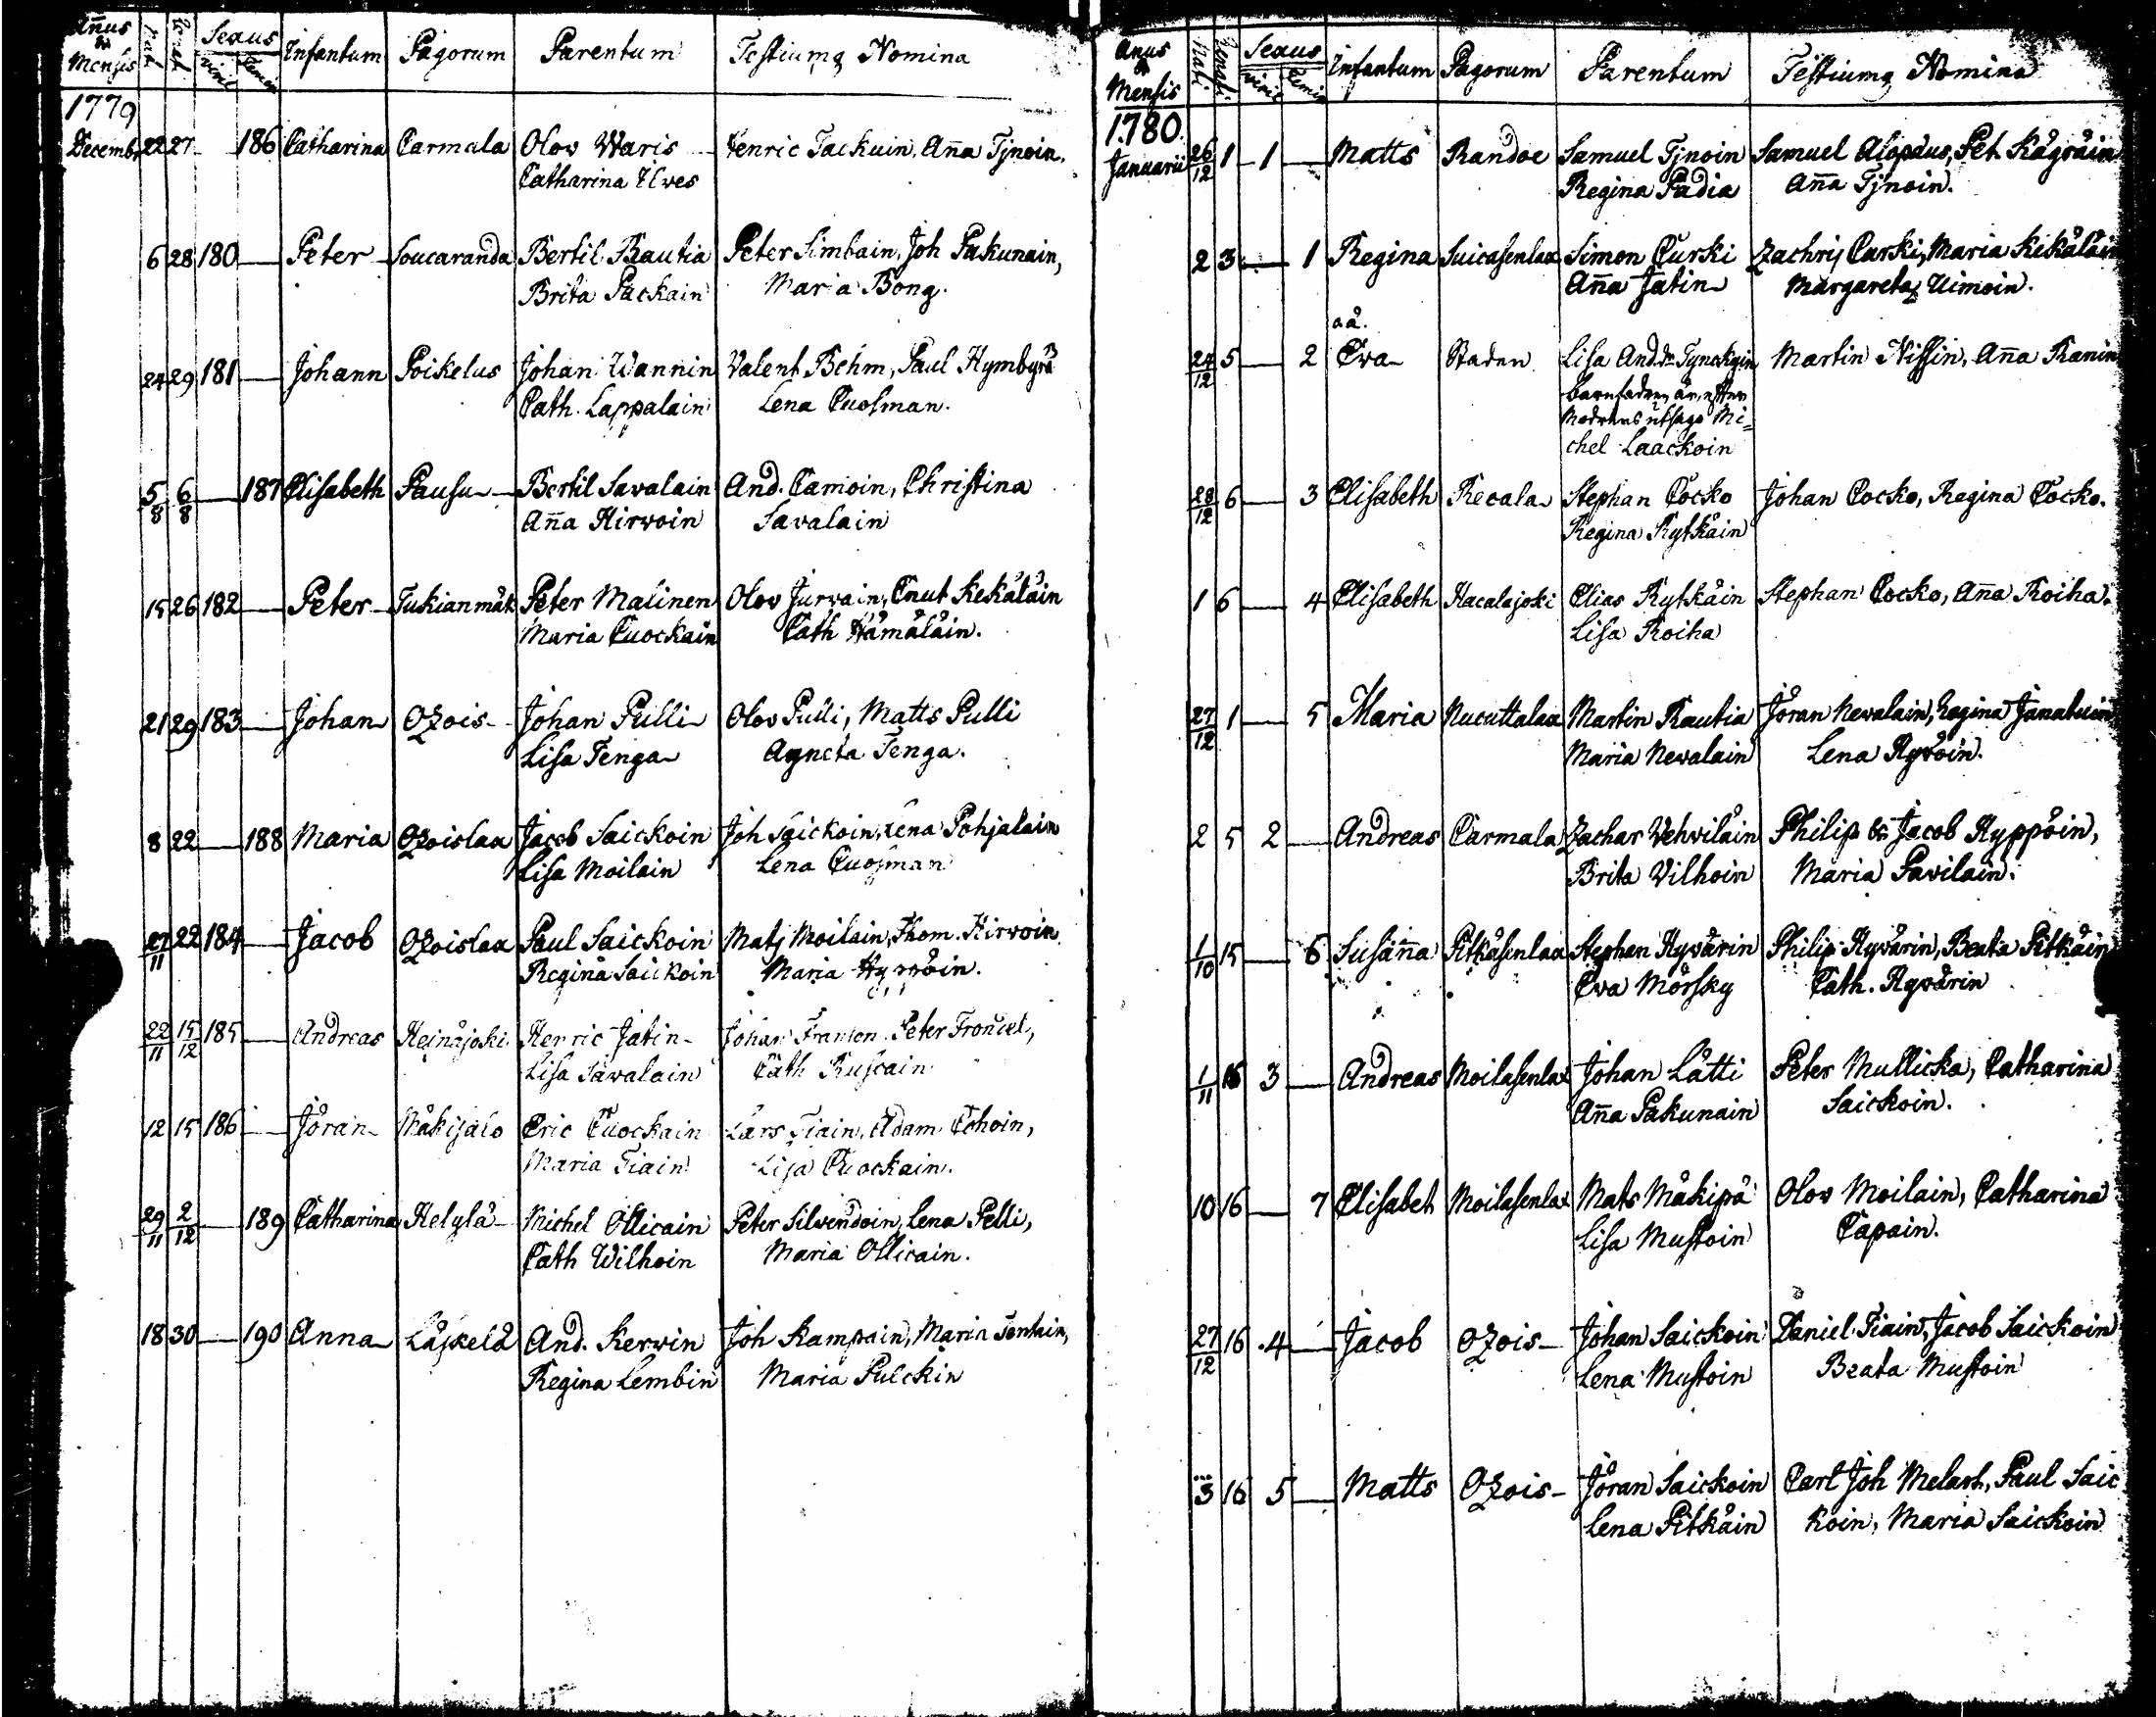 Añus & Mensis Nati Renati Sexus viril femin Infantum Pagorum Parentum Testiumq Nomina
1779
Decembr 22 27 186 Catharina Carmala Olov Waris Henric Tackuin, Aña Tÿnoin.
Catharina Ilves
6 28 180 Peter Soucaranda Bertil Rautia Peter Simbain, Joh Pakunain,
Brita Packain Maria Bong.
24 29 181 Johann Poikelus Johan Wannin Valent Behm, Paul Hymbyrä
Cath. Lappalain Lena Cuosman.
5/8 6/8 187 Elisabeth Pausu Bertil Savalain And. Camoin, Christina
Aña Hirvoin Savalain
15 26 182 Peter Tukianmäk Peter Malinen Olov Jurvain, Cnut Kekäläin
Maria Cuockain Cath Hämäläin.
21 29 183 Johan Ozois Johan Pulli Olov Pulli, Matts Pulli
Lisa Tenga Agneta Tenga.
8 22 188 Maria Ozoislax Jacob Saickoin Joh Saickoin, Lena Pohjalain
Lisa Moilain Lena Cuosman
27/11 22 184 Jacob Ozoislax Paul Saickoin Mats Moilain, Thom. Hirvoin
Regina Saickoin Maria Hyvöin.
22/11 15/12 185 Andreas Heinäjoki Henric Jatin Johan Peter
Lisa Savalain Cath Ruscain
12 15 186 Jöran Mäkisalo Eric Cuockain Lars Tiain, Adam Echoin,
Maria Tiain Lisa Cuockain.
29/11 2/12 189 Catharina Helylä Michel Ollicain Peter Silvendoin, Lena Pelli,
Cath Wilhoin Maria Ollicain.
18 30 190 Anna Läskelä And. Kervin Joh Kampain, Maria
Regina Lembin Maria Pulckin
Anus & Mensis Nati Renati Sexus viril femin Infantum Pagorum Parentum Testiumq Nomina
1780.
Januarii 26/12 1 1 Matts Randoe Samuel Tÿnoin Samuel Alopæus, Pet. Kägräin
Regina Padia Aña Tÿnoin.
2 3 1 Regina Suicasenlax Simon Curski Zachrij Curski, Maria Kekäläin
Aña Jatin Margareta Uimoin.
oä.
24/12 5 2 Eva Staden Lisa And.dr Martin Nissin, Aña Ranin
barnfadren är, efter
Modrens utsago Mi=
chel Laackoin
28/12 6 3 Elisabeth Recala Stephan Cocko Johan Cocko, Regina Cocko.
Regina Rytkäin
1 6 4 Elisabeth Hacalajoki Elias Rytkäin Stephan Cocko, Aña Roiha.
Lisa Roiha
27/12 1 5 Maria Nucuttalax Martin Rautia Jöran Nevalain, Regina Janatuin
Maria Nevalain Lena Hyvöin.
2 5 2 Andreas Carmala Zachar Vehviläin Philip & Jacob Hyppöin,
Brita Vilhoin Maria Pavilain.
1/10 15 6 Susaña Pitkäsenlax Stephan Hyvärin Philip Hyvärin, Beata Pitkäin
Eva Mörsky Cath. Hyvärin
1/11 16 3 Andreas Moilasenlax Johan Lätti Peter Mullicka, Catharina
Aña Pakunain Saickoin.
10 16 7 Elisabet Moilasenlax Mats Mäkipä Olov Moilain, Catharina
Lisa Mustoin Capain.
27/12 16 4 Jacob Ozois Johan Saickoin Daniel Tiain, Jacob Saickoin
Lena Mustoin Beata Mustoin
3 16 5 Matts Ozois Jöran Saickoin Carl Joh Melart, Paul Saic
Lena Pitkäin koin, Maria Saickoin